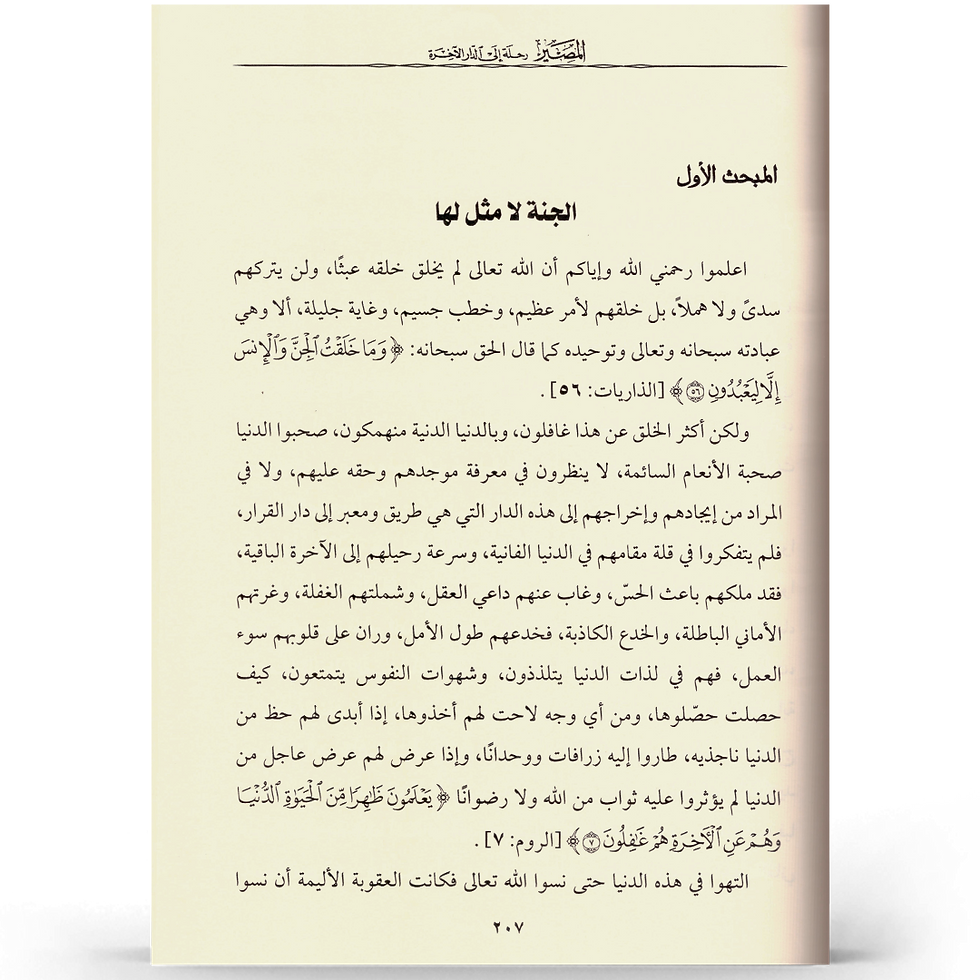 المصير رحلة إلى الدار الآخرة
المبحث الأول
الجنة لا مثل لها
اعلموا رحمني الله وإياكم أن الله تعالى لم يخلق خلقه عبثًا، ولن يتركهم
سدىً ولا هملاً، بل خلقهم لأمر عظيم، وخطب جسيم، وغاية جليلة، ألا وهي
عبادته سبحانه وتعالى وتوحيده كما قال الحق سبحانه: ﴿وَمَا خَلَقْتُ ٱلْجِنَّ وَٱلْإِنسَ
إِلَّا لِيَعْبُدُونِ ۝٥٦﴾ [الذاريات: ٥٦].
ولكن أكثر الخلق عن هذا غافلون، وبالدنيا الدنية منهمكون، صحبوا الدنيا
صحبة الأنعام السائمة، لا ينظرون في معرفة موجدهم وحقه عليهم، ولا في
المراد من إيجادهم وإخراجهم إلى هذه الدار التي هي طريق ومعبر إلى دار القرار،
فلم يتفكروا في قلة مقامهم في الدنيا الفانية، وسرعة رحيلهم إلى الآخرة الباقية،
فقد ملكهم باعث الحسّ، وغاب عنهم داعي العقل، وشملتهم الغفلة، وغرتهم
الأماني الباطلة، والخدع الكاذبة، فخدعهم طول الأمل، وران على قلوبهم سوء
العمل، فهم في لذات الدنيا يتلذذون، وشهوات النفوس يتمتعون، كيف
حصلت حصّلوها، ومن أي وجه لاحت لهم أخذوها، إذا أبدى لهم حظ من
الدنيا ناجذيه، طاروا إليه زرافات ووحدانًا، وإذا عرض لهم عرض عاجل من
الدنيا لم يؤثروا عليه ثواب من الله ولا رضوانًا ﴿يَعْلَمُونَ ظَٰهِرًا مِّنَ ٱلْحَيَوٰةِ ٱلدُّنْيَا
وَهُمْ عَنِ ٱلْأَخِرَةِ هُمْ غَٰفِلُونَ ۝٧﴾ [الروم: ٧].
التهوا في هذه الدنيا حتى نسوا الله تعالى فكانت العقوبة الأليمة أن نسوا
٢٠٧